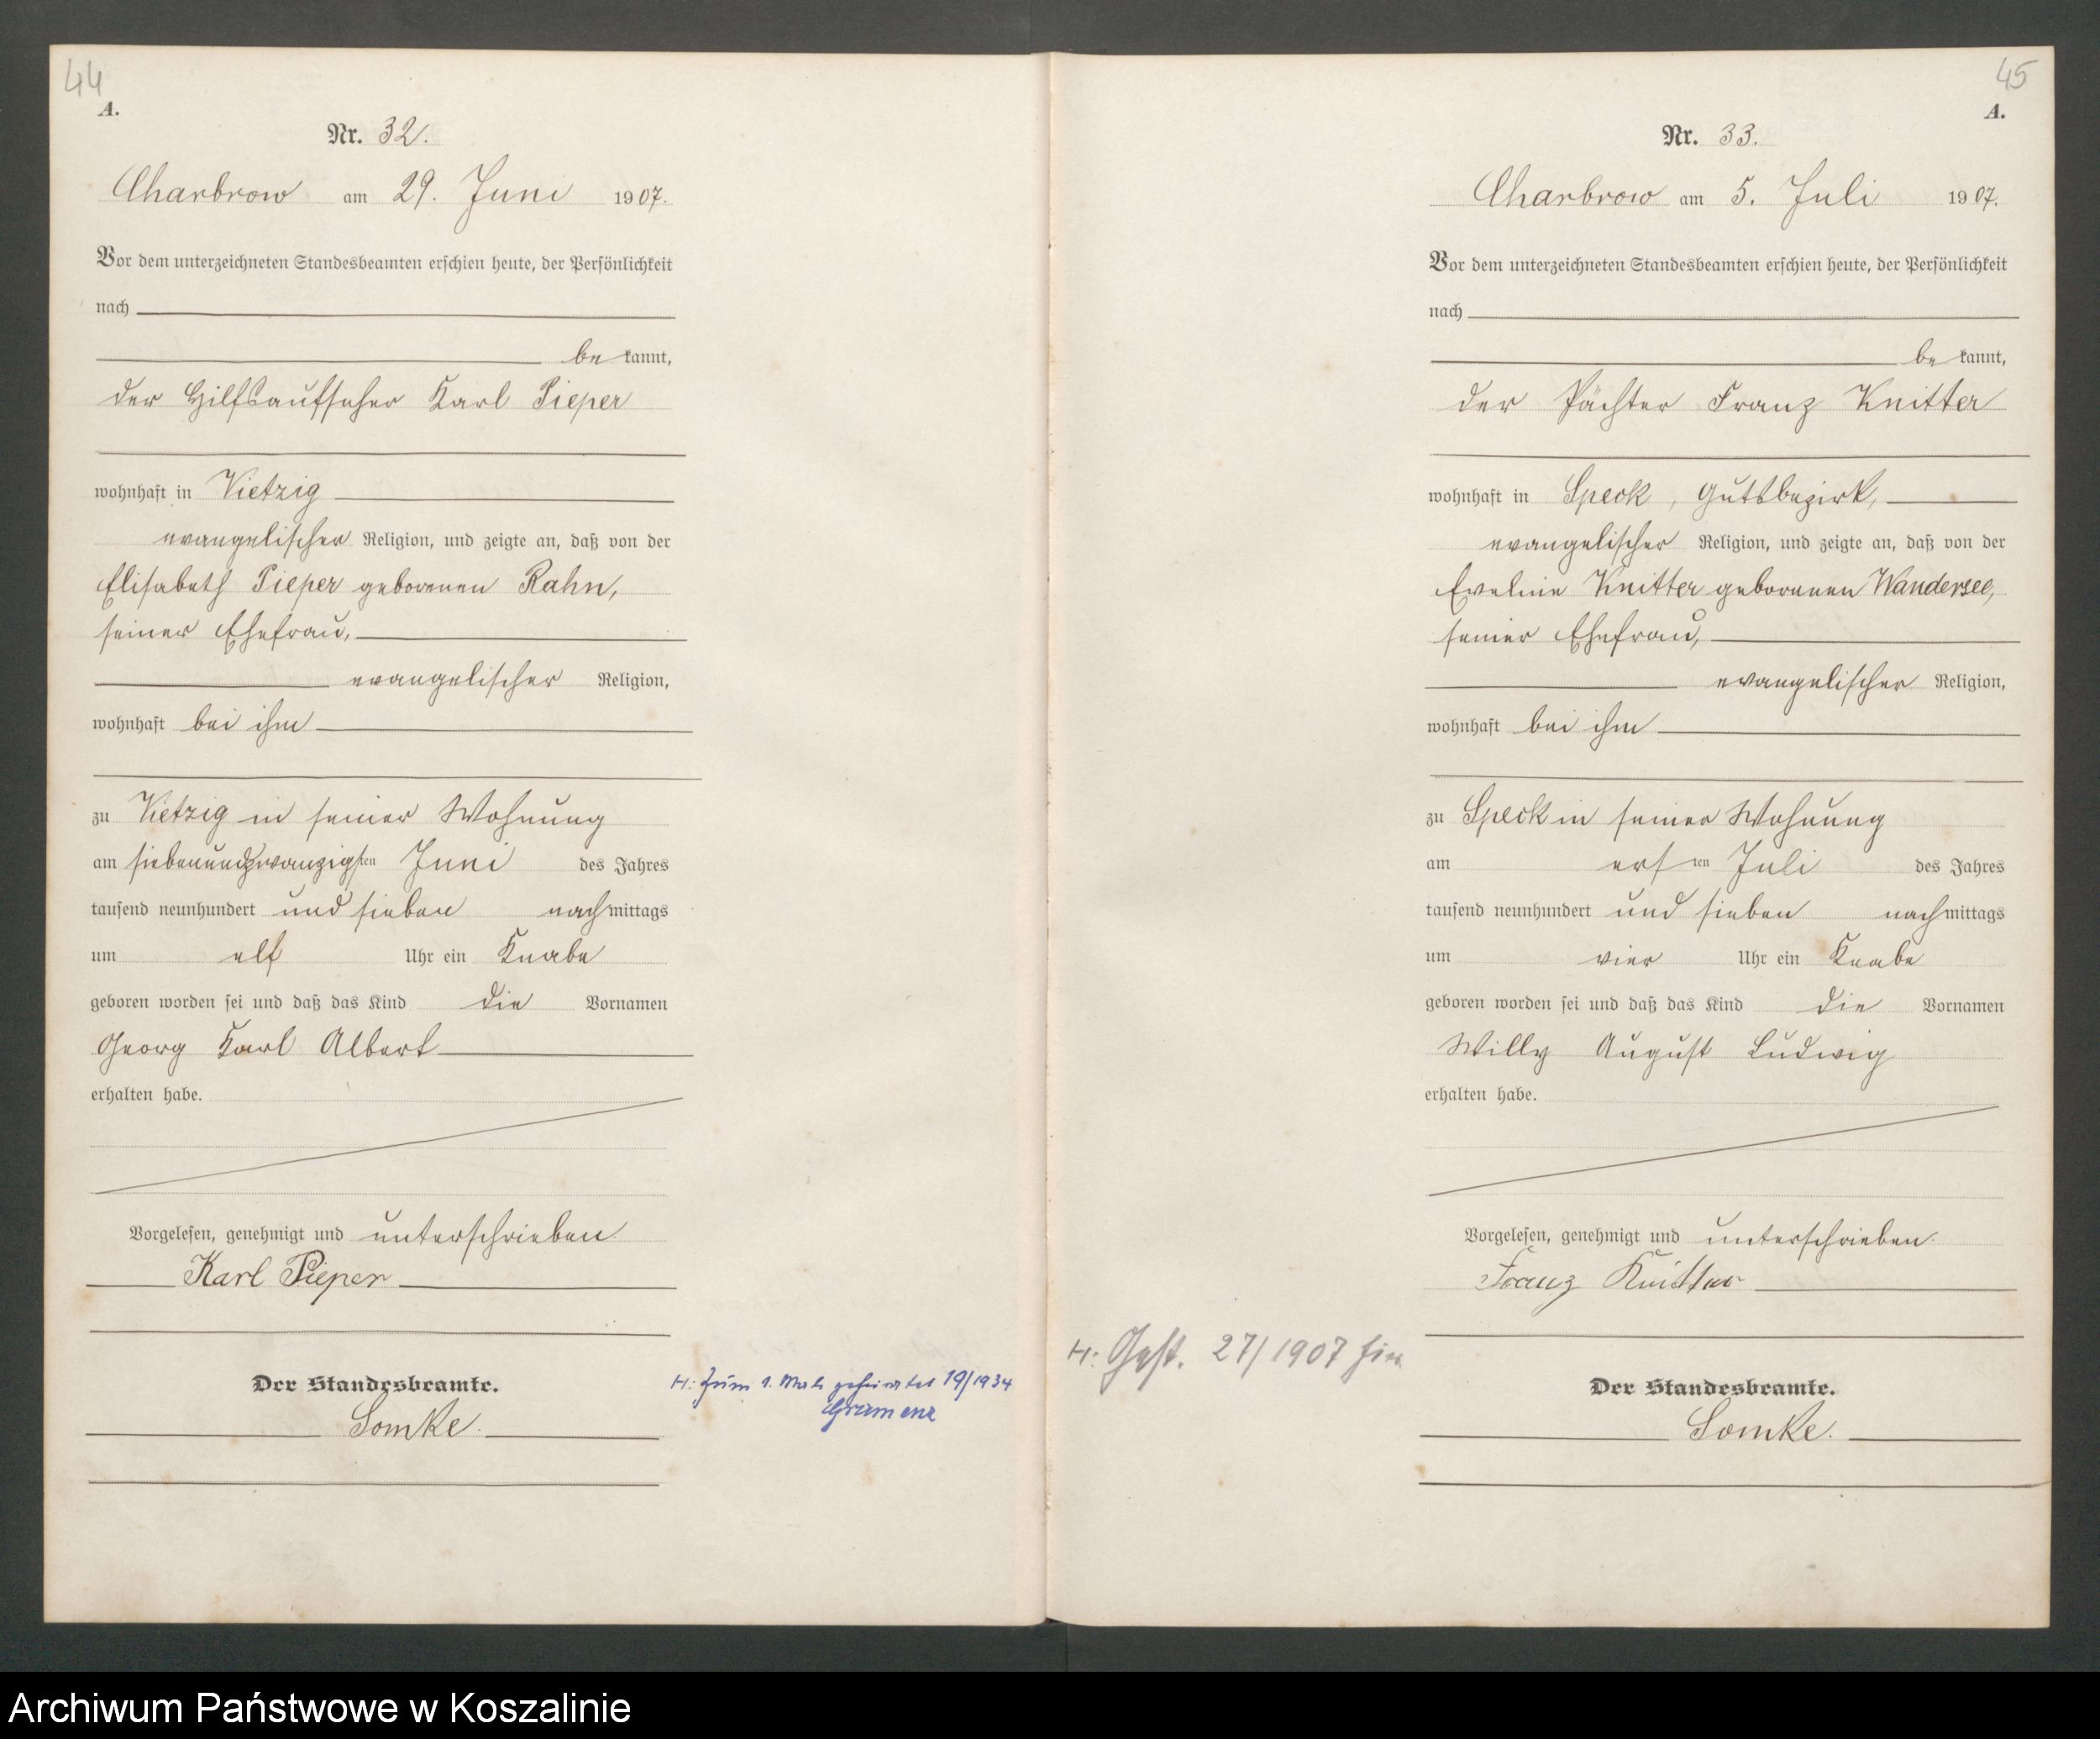 44
A.
Nr. 32.
Charbrow am 29. Juni 1907.
Vor dem unterzeichneten Standesbeamten erschien heute, der Persönlichkeit
nach
be kannt,
der Hilfsaufseher Karl Pieper
wohnhaft in Vietzig
evangelischer Religion, und zeigte an, daß von der
Elisabeth Pieper geborenen Rahn,
seiner Ehefrau,
evangelischer Religion,
wohnhaft bei ihm
zu Vietzig in seiner Wohnung
am siebenundzwanzigsten Juni des Jahres
tausend neunhundert und sieben nachmittags
um elf Uhr ein Knabe
geboren worden sei und daß das Kind die Vornamen
Georg Karl Albert
erhalten habe.
Vorgelesen, genehmigt und unterschrieben
Karl Pieper
Der Standesbeamte.
Somke.
H: Zum 1. Male geheiratet 19/1934
Gramenz
45
A.
Nr. 33.
Charbrow am 5. Juli 1907.
Vor dem unterzeichneten Standesbeamten erschien heute, der Persönlichkeit
nach
be kannt,
der Pächter Franz Knitter
wohnhaft in Speck, Gutsbezirk,
evangelischer Religion, und zeigte an, daß von der
Eveline Knitter geborenen Wandersee,
seiner Ehefrau,
evangelischer Religion,
wohnhaft bei ihm
zu Speck in seiner Wohnung
am ersten Juli des Jahres
tausend neunhundert und sieben nachmittags
um vier Uhr ein Knabe
geboren worden sei und daß das Kind die Vornamen
Willy August Ludwig
erhalten habe.
Vorgelesen, genehmigt und unterschrieben.
Franz Knitter
H: Gest. 27/1907 hier
Der Standesbeamte.
Somke.
Archiwum Państwowe w Koszalinie